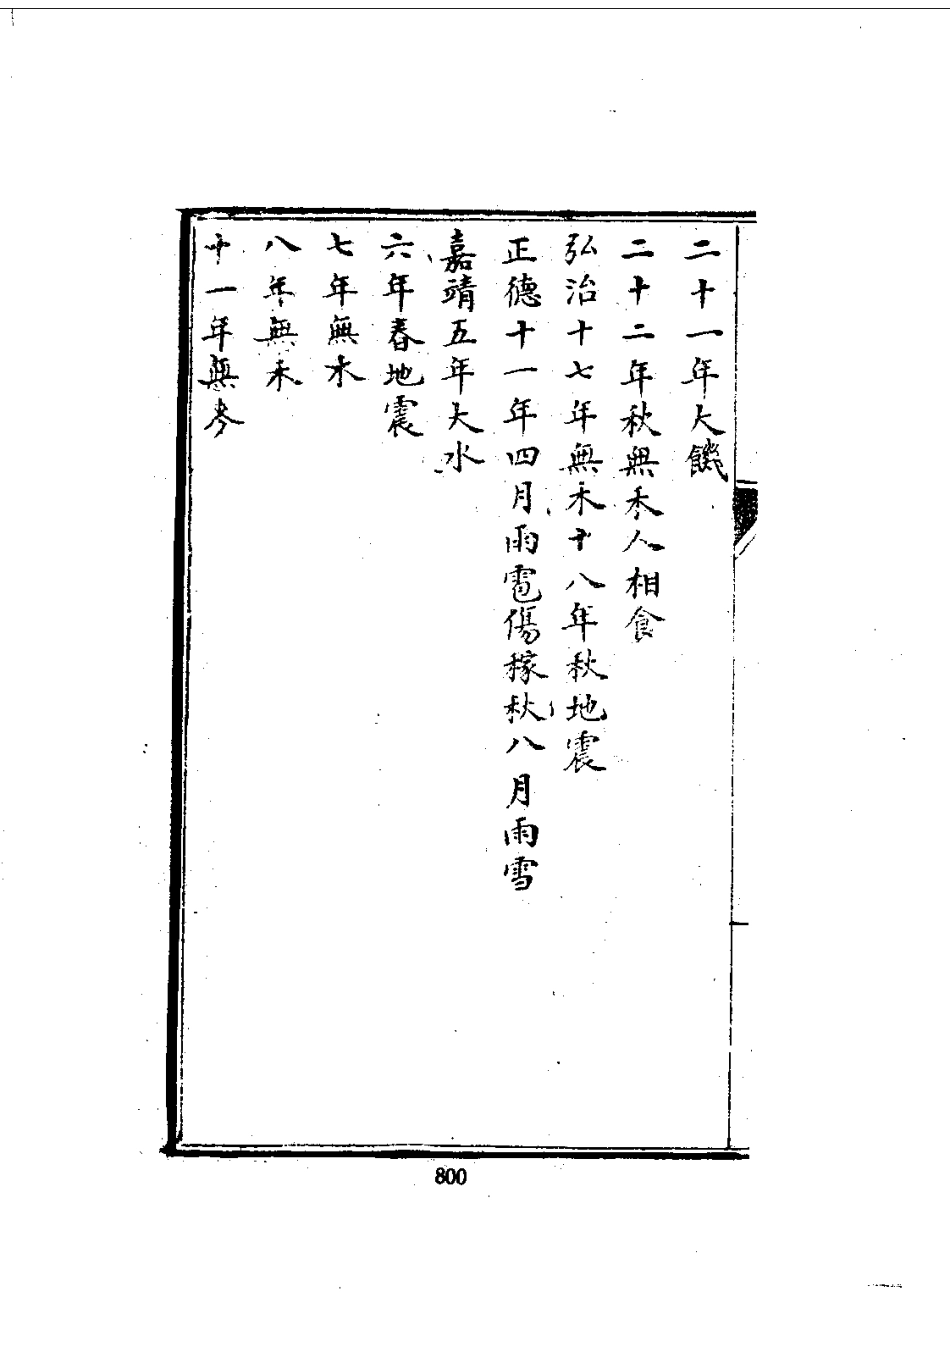 二十一年大饑
二十二年秋無禾人相食
弘治十七年無禾十八年秋地震
正德十一年四月雨雹傷稼秋八月雨雪
嘉靖五年大水
六年春地震
七年無禾
八年無禾
十一年無麥
800